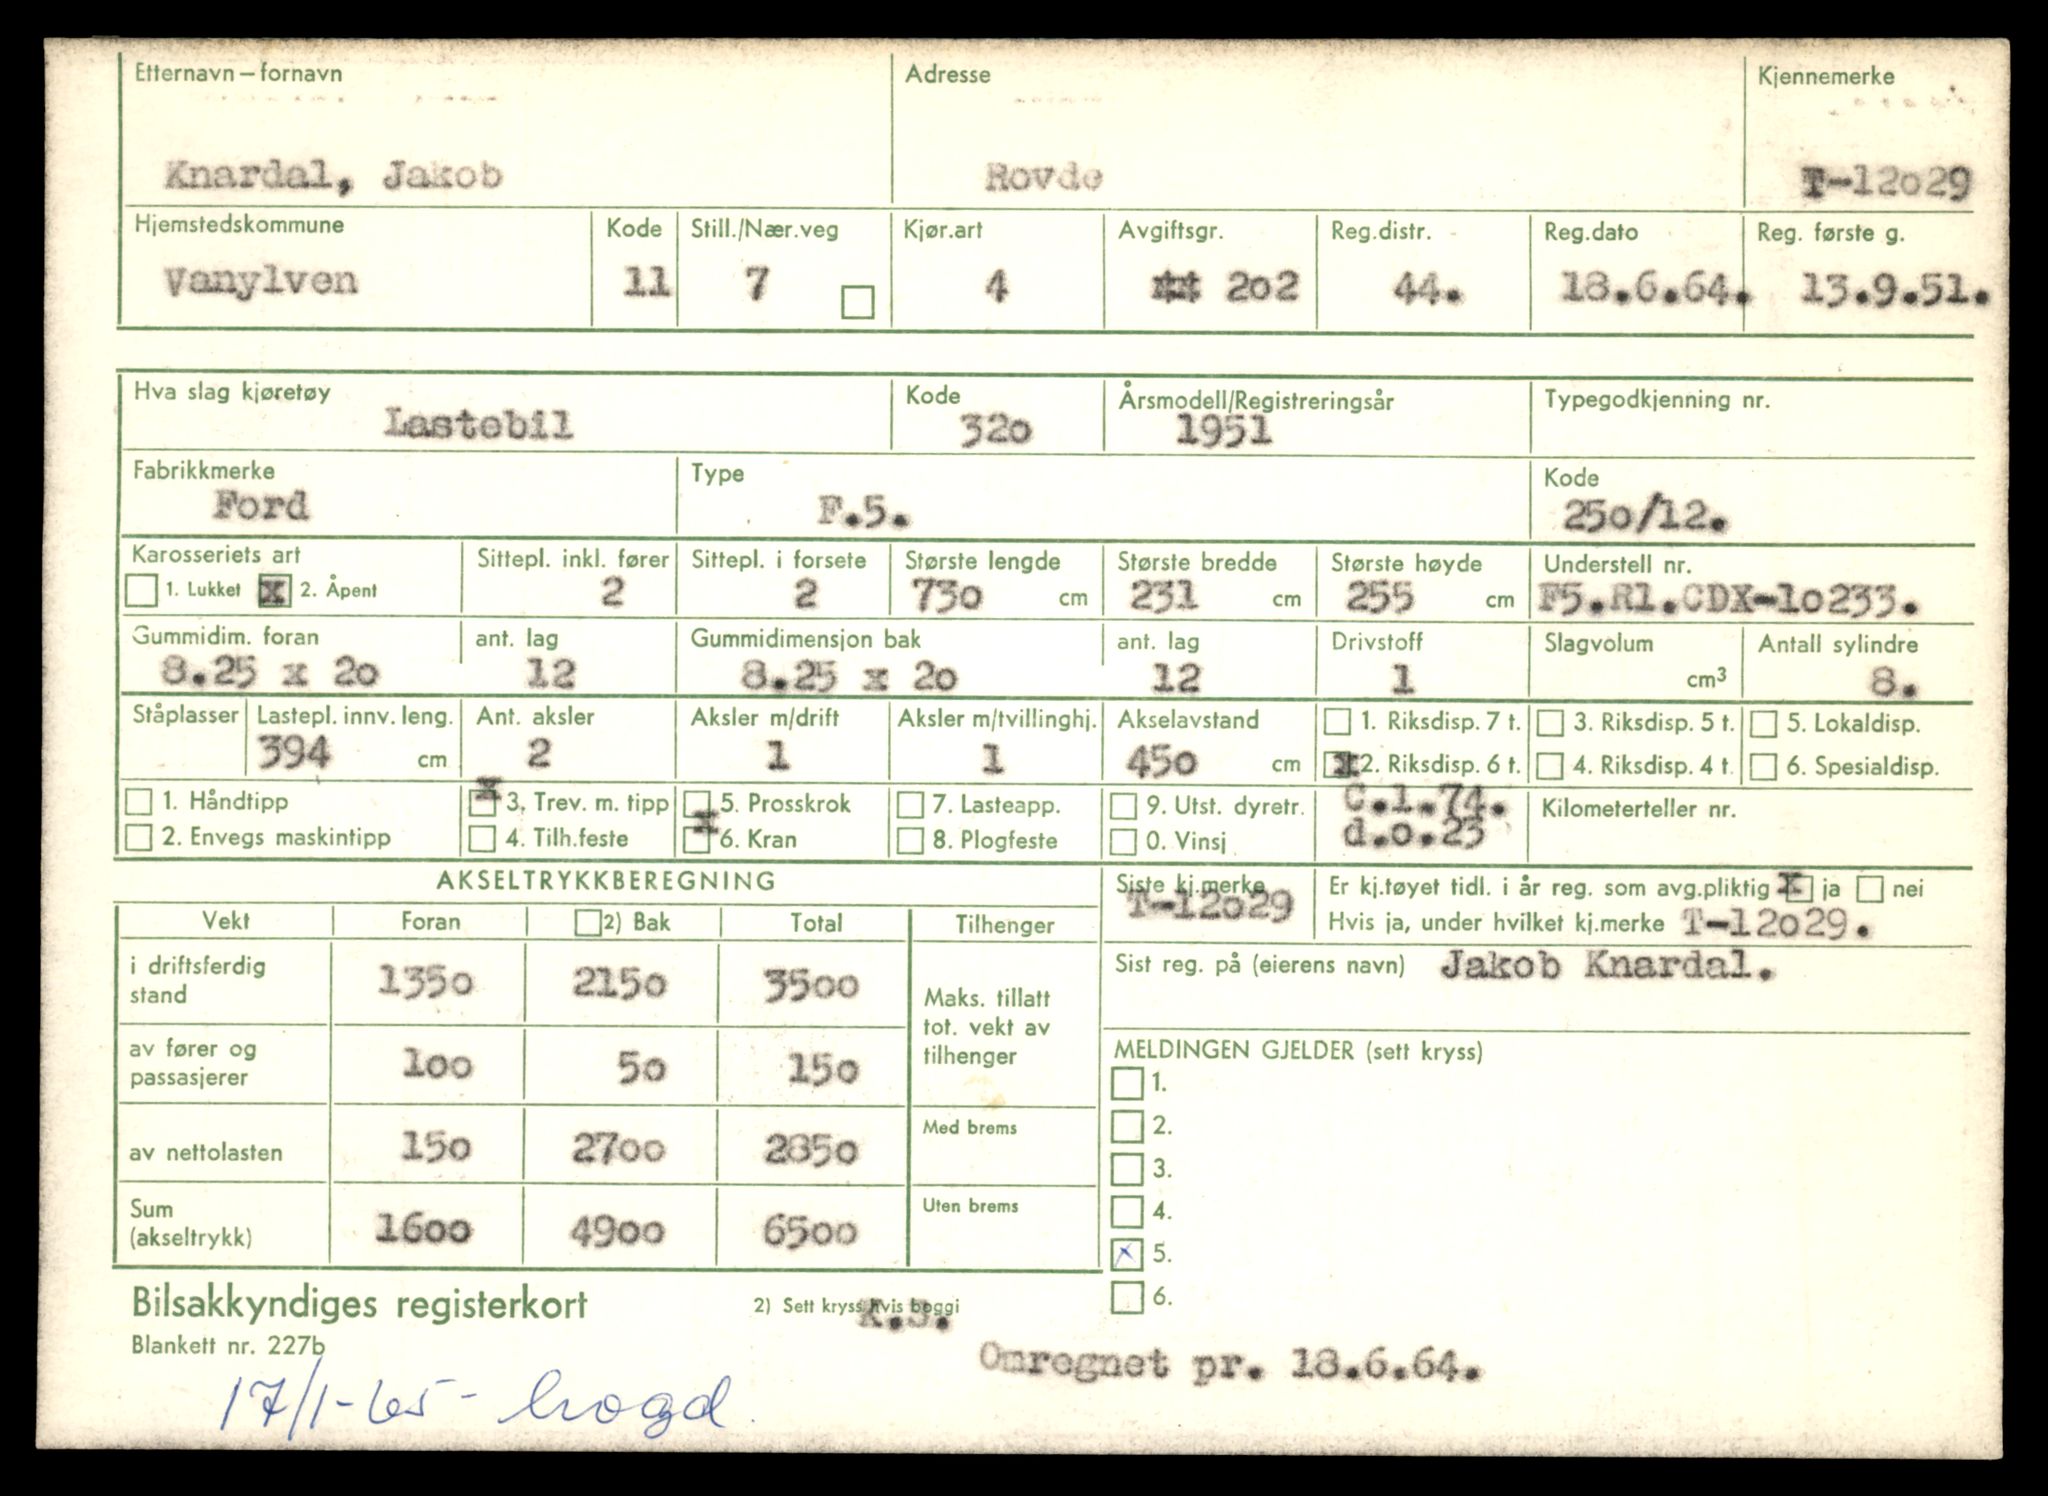 Etternavn – fornavn Adresse Kjennemerke
Knardal, Jakob Rovde T-12029
Hjemstedskommune Kode Still./Nær.veg Kjør.art Avgiftsgr. Reg.distr. Reg.dato Reg. første g.
Vanylven 11 7 4 202 44. 18.6.64. 13.9.51.
Hva slag kjøretøy Kode Årsmodell/Registreringsår Typegodkjenning nr.
Lastebil 320 1951
Fabrikkmerke Type Kode
Ford F.5. 250/12.
Karosseriets art Sittepl. inkl. fører Sittepl. i forsete Største lengde Største bredde Største høyde Understell nr.
1. Lukket x 2. Åpent 2 2 730 cm 231 cm 255 cm F5.R1.CDX-10233.
Gummidim. foran ant. lag Gummidimensjon bak ant. lag Drivstoff Slagvolum Antall sylindre
8.25 x 20 12 8.25 x 20 12 1 cm³ 8.
Ståplasser Lastepl. innv. leng. Ant. aksler Aksler m/drift Aksler m/tvillinghj. Akselavstand 1. Riksdisp. 7 t. 3. Riksdisp. 5 t. 5. Lokaldisp.
394 cm 2 1 1 450 cm x 2. Riksdisp. 6 t. 4. Riksdisp. 4 t. 6. Spesialdisp.
1. Håndtipp x 3. Trev. m. tipp 5. Prosskrok 7. Lasteapp. 9. Utst. dyretr. C.1.74. Kilometerteller nr.
2. Envegs maskintipp 4. Tilh.feste x 6. Kran 8. Plogfeste 0. Vinsj d.o.23
AKSELTRYKKBEREGNING Siste kj.merke Er kj.tøyet tidl. i år reg. som avg.pliktig x ja nei
T-12029
Vekt Foran 2) Bak Total Tilhenger Hvis ja, under hvilket kj.merke T-12029.
i driftsferdig stand 1350 2150 3500 Sist reg. på (eierens navn) Jakob Knardal.
Maks. tillatt
tot. vekt av
tilhenger
av fører og passasjerer 100 50 150 MELDINGEN GJELDER (sett kryss)
1.
av nettolasten 150 2700 2850 Med brems 2.
3.
Sum (akseltrykk) 1600 4900 6500 Uten brems 4.
x 5.
6.
Bilsakkyndiges registerkort 2) Sett kryss hvis boggi
K.S.
Blankett nr. 227b
Omregnet pr. 18.6.64.
17/1-65 - hogd.